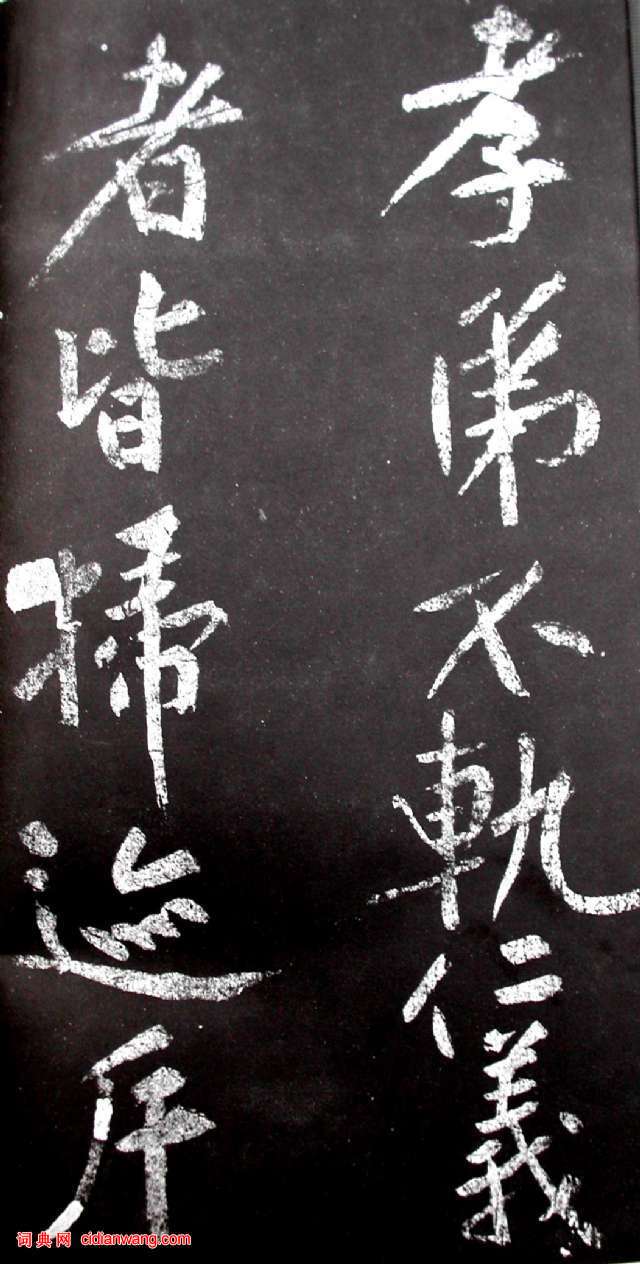 孝弟不軌仁義
者皆掃迹斥
词典网 cidianwang.com